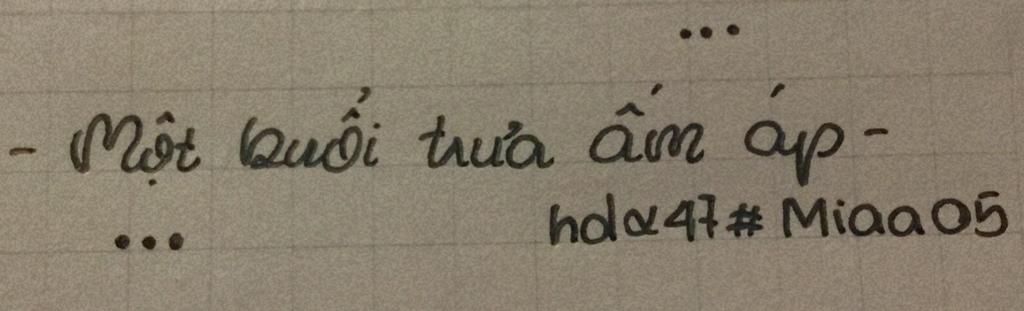 ...
- Một buổi trưa ấm áp -
... hdα47# Miaa05